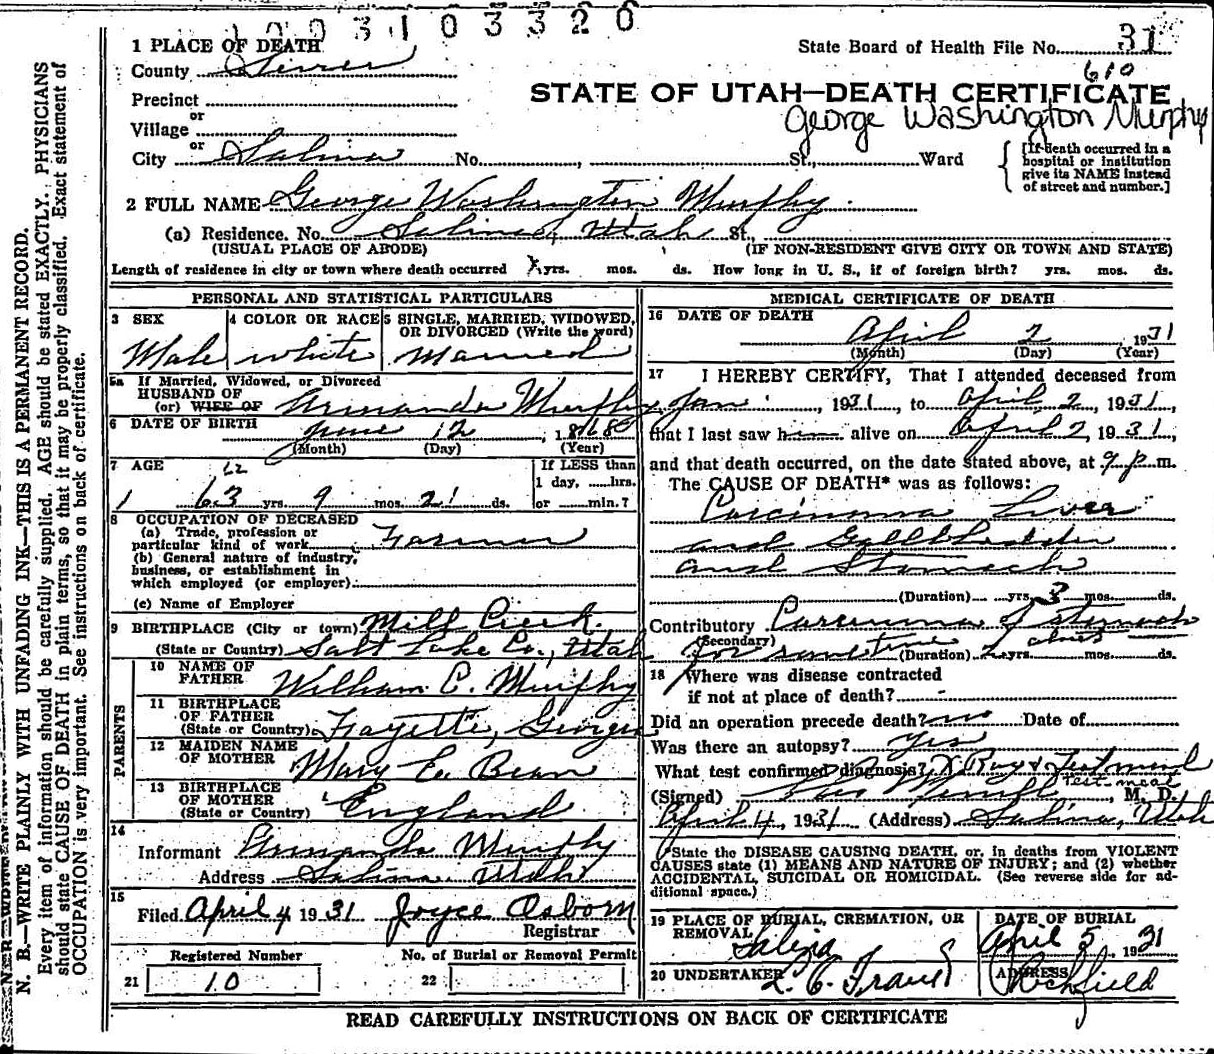 1003103320
1 PLACE OF DEATH
State Board of Health File No. 31
County Sevier
610
STATE OF UTAH—DEATH CERTIFICATE
Precinct
George Washington Murphy
or
Village
or
City Salina No. , St., Ward
[If death occurred in a
hospital or institution
give its NAME instead
of street and number.]
2 FULL NAME George Washington Murphy
(a) Residence. No. Salina, Utah St.,
(USUAL PLACE OF ABODE) (IF NON-RESIDENT GIVE CITY OR TOWN AND STATE)
Length of residence in city or town where death occurred yrs. mos. ds. How long in U. S., if of foreign birth? yrs. mos. ds.
PERSONAL AND STATISTICAL PARTICULARS
3 SEX 4 COLOR OR RACE 5 SINGLE, MARRIED, WIDOWED,
OR DIVORCED (Write the word)
Male white Married
5a If Married, Widowed, or Divorced
HUSBAND OF
(or) WIFE OF Ermanda Murphy
6 DATE OF BIRTH June 12, 1868
(Month) (Day) (Year)
7 AGE 62 If LESS than
1 day, hrs.
63 yrs. 9 mos. 21 ds. or min.?
8 OCCUPATION OF DECEASED
(a) Trade, profession or
particular kind of work Farmer
(b) General nature of industry,
business, or establishment in
which employed (or employer)
(c) Name of Employer
9 BIRTHPLACE (City or town) Mill Creek.
(State or Country) Salt Lake Co., Utah
PARENTS
10 NAME OF
FATHER William C. Murphy
11 BIRTHPLACE
OF FATHER
(State or Country) Fayette, Georgia
12 MAIDEN NAME
OF MOTHER Mary E. Bean
13 BIRTHPLACE
OF MOTHER
(State or Country) England
14
Informant Ermanda Murphy
Address Salina Utah
15
Filed April 4 1931 Joyce Osborn
Registrar
Registered Number No. of Burial or Removal Permit
21 10 22
MEDICAL CERTIFICATE OF DEATH
16 DATE OF DEATH
April 2 1931
(Month) (Day) (Year)
17 I HEREBY CERTIFY, That I attended deceased from
Jan , 1931, to April 2, 1931,
that I last saw him alive on April 2, 1931,
and that death occurred, on the date stated above, at 9 p. m.
The CAUSE OF DEATH* was as follows:
Carcinoma Liver
and Gallbladder
and Stomach
(Duration) yrs. 3 mos. ds.
Contributory Carcinoma of stomach
(Secondary) for sometime about
(Duration) yrs. mos. ds.
18 Where was disease contracted
if not at place of death? -
Did an operation precede death? no Date of
Was there an autopsy? yes
What test confirmed diagnosis? X Ray & Test meal
test meal
(Signed) , M. D.
April 4, 1931 (Address) Salina, Utah
*State the DISEASE CAUSING DEATH, or, in deaths from VIOLENT
CAUSES state (1) MEANS AND NATURE OF INJURY; and (2) whether
ACCIDENTAL, SUICIDAL OR HOMICIDAL. (See reverse side for ad-
ditional space.)
19 PLACE OF BURIAL, CREMATION, OR
REMOVAL Salina
DATE OF BURIAL
April 5, 1931
20 UNDERTAKER
ADDRESS
Richfield
READ CAREFULLY INSTRUCTIONS ON BACK OF CERTIFICATE
N. B.—WRITE PLAINLY WITH UNFADING INK—THIS IS A PERMANENT RECORD.
Every item of information should be carefully supplied. AGE should be stated EXACTLY. PHYSICIANS
should state CAUSE OF DEATH in plain terms, so that it may be properly classified. Exact statement of
OCCUPATION is very important. See instructions on back of certificate.